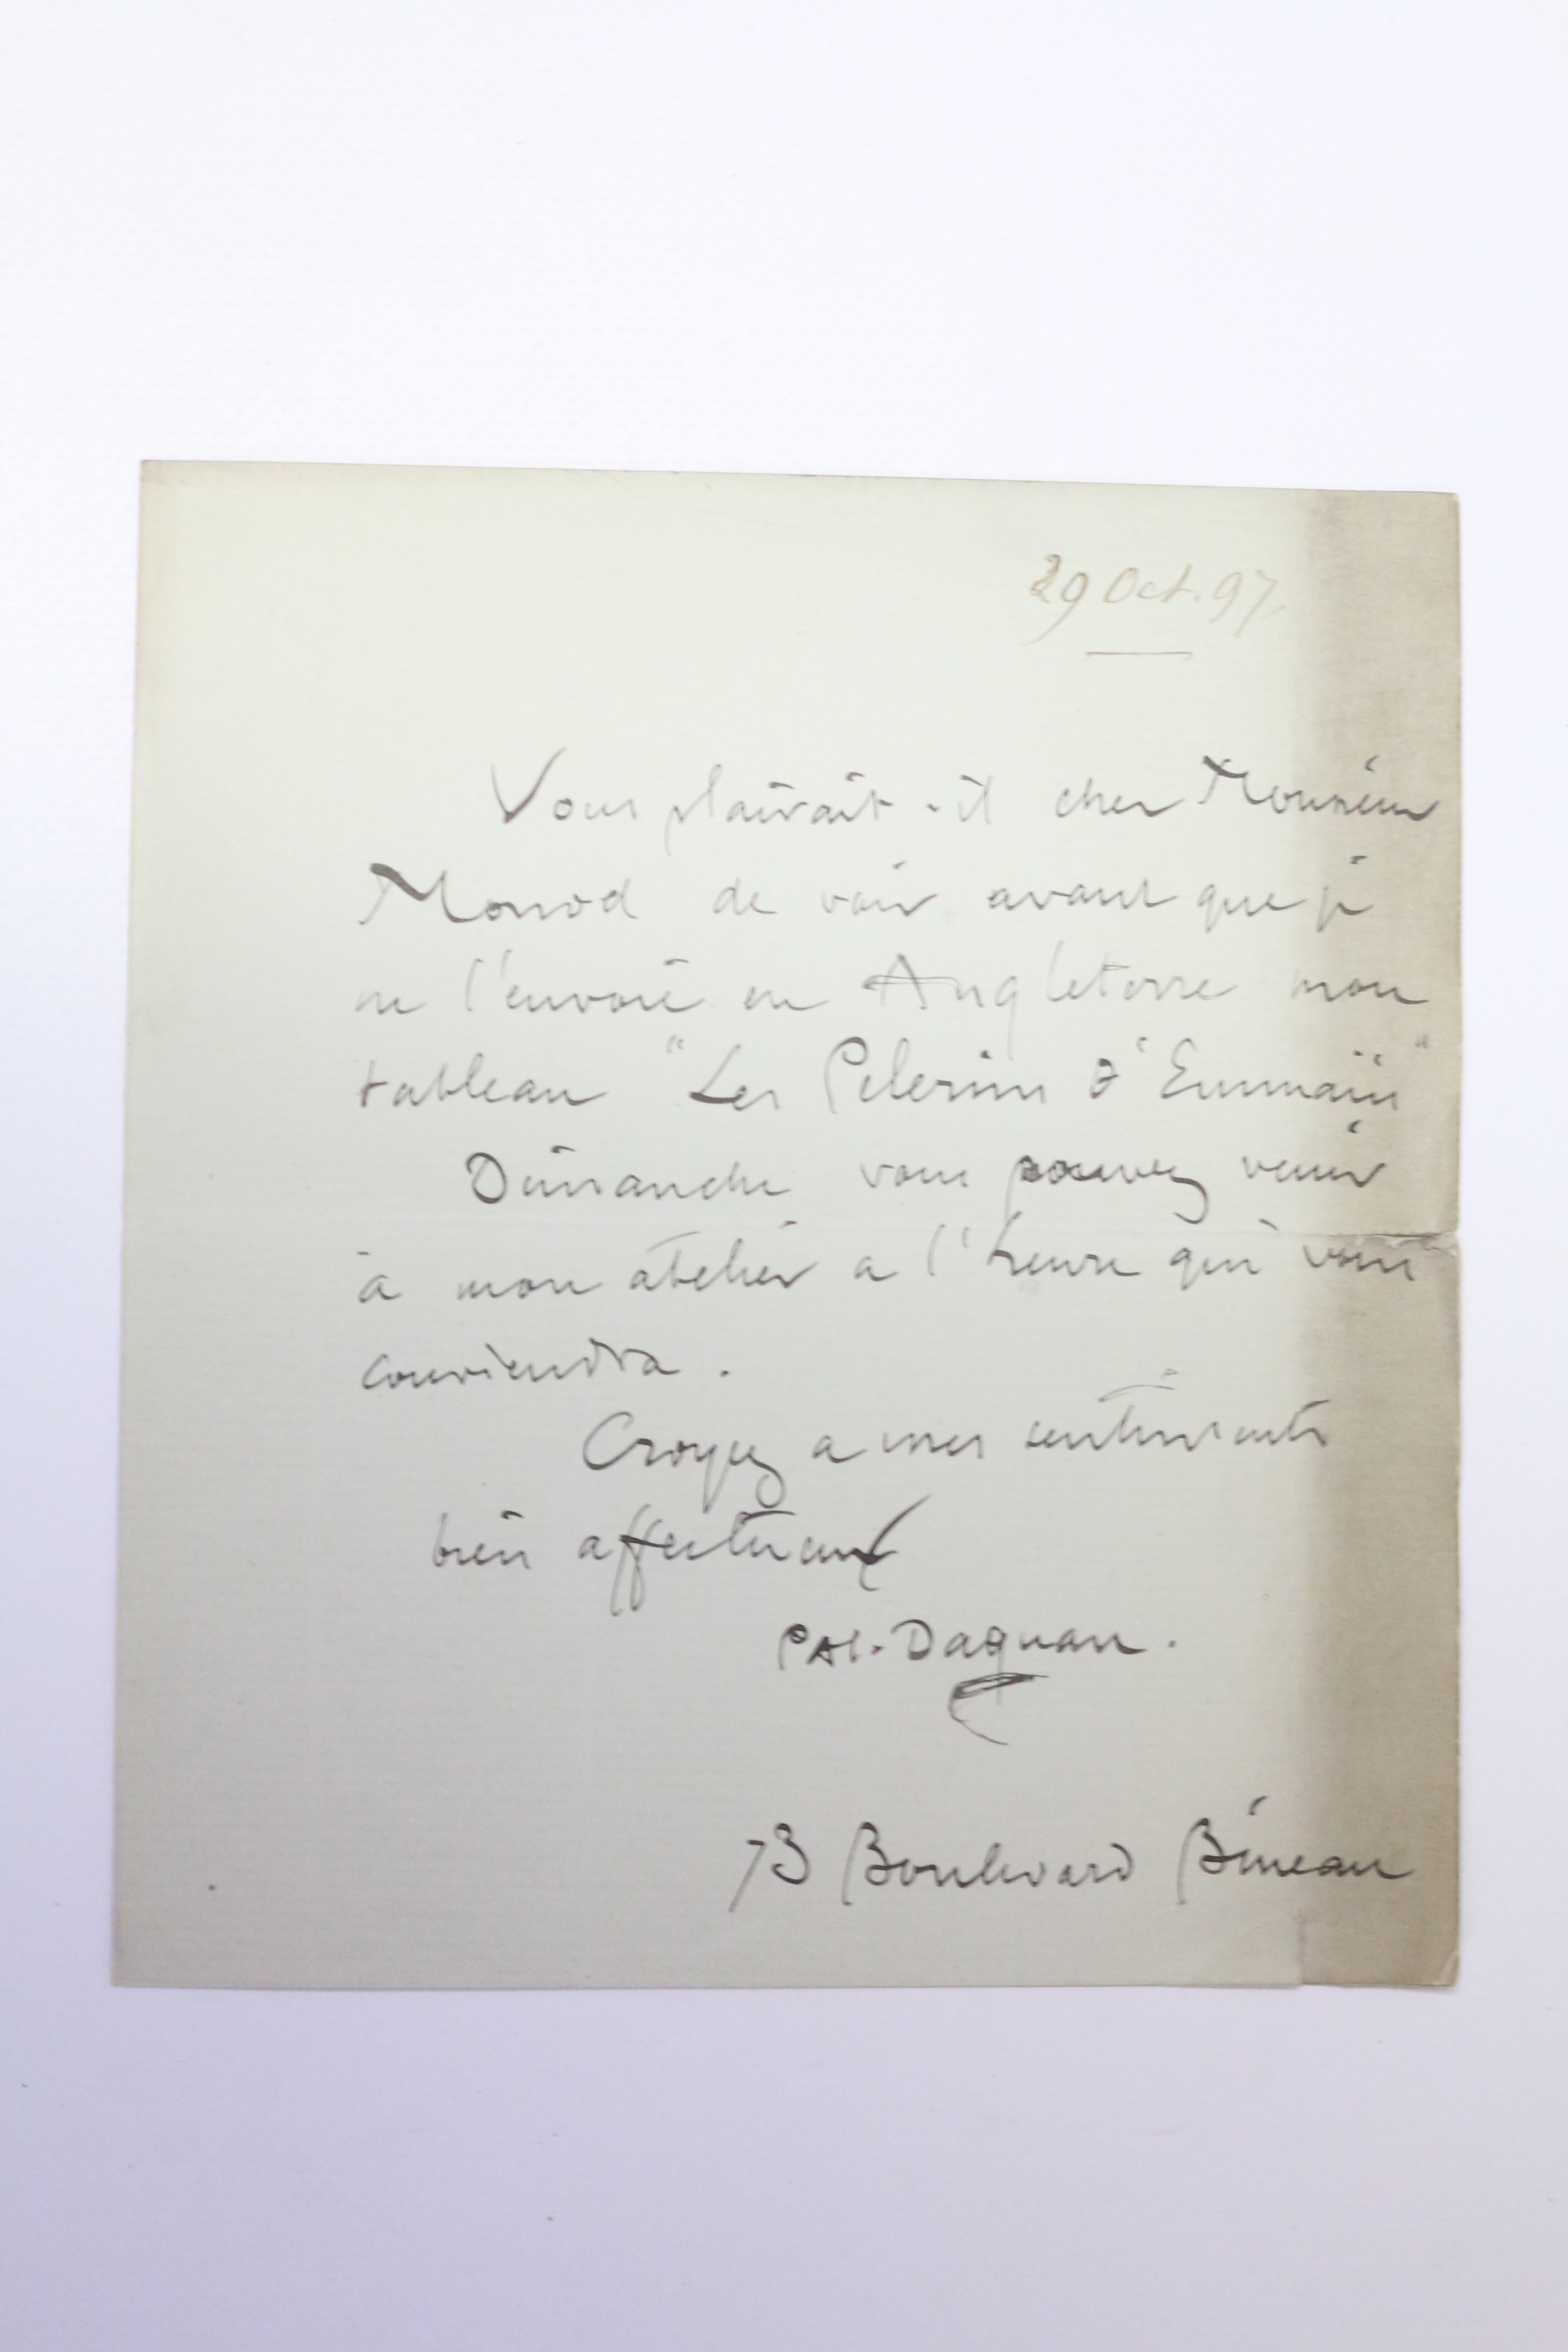 29 Oct. 97
Vous plairait-il cher Monsieur
Monod de voir avant que je
ne l'envoie en Angleterre mon
tableau "Les Pelerins d'Emmaüs"
Dimanche vous pouvez venir
à mon atelier a l'heure qui vous
conviendra.
Croyez a mes sentiments
bien affectueux
PAJ. Dagnan.
73 Boulevard Bineau